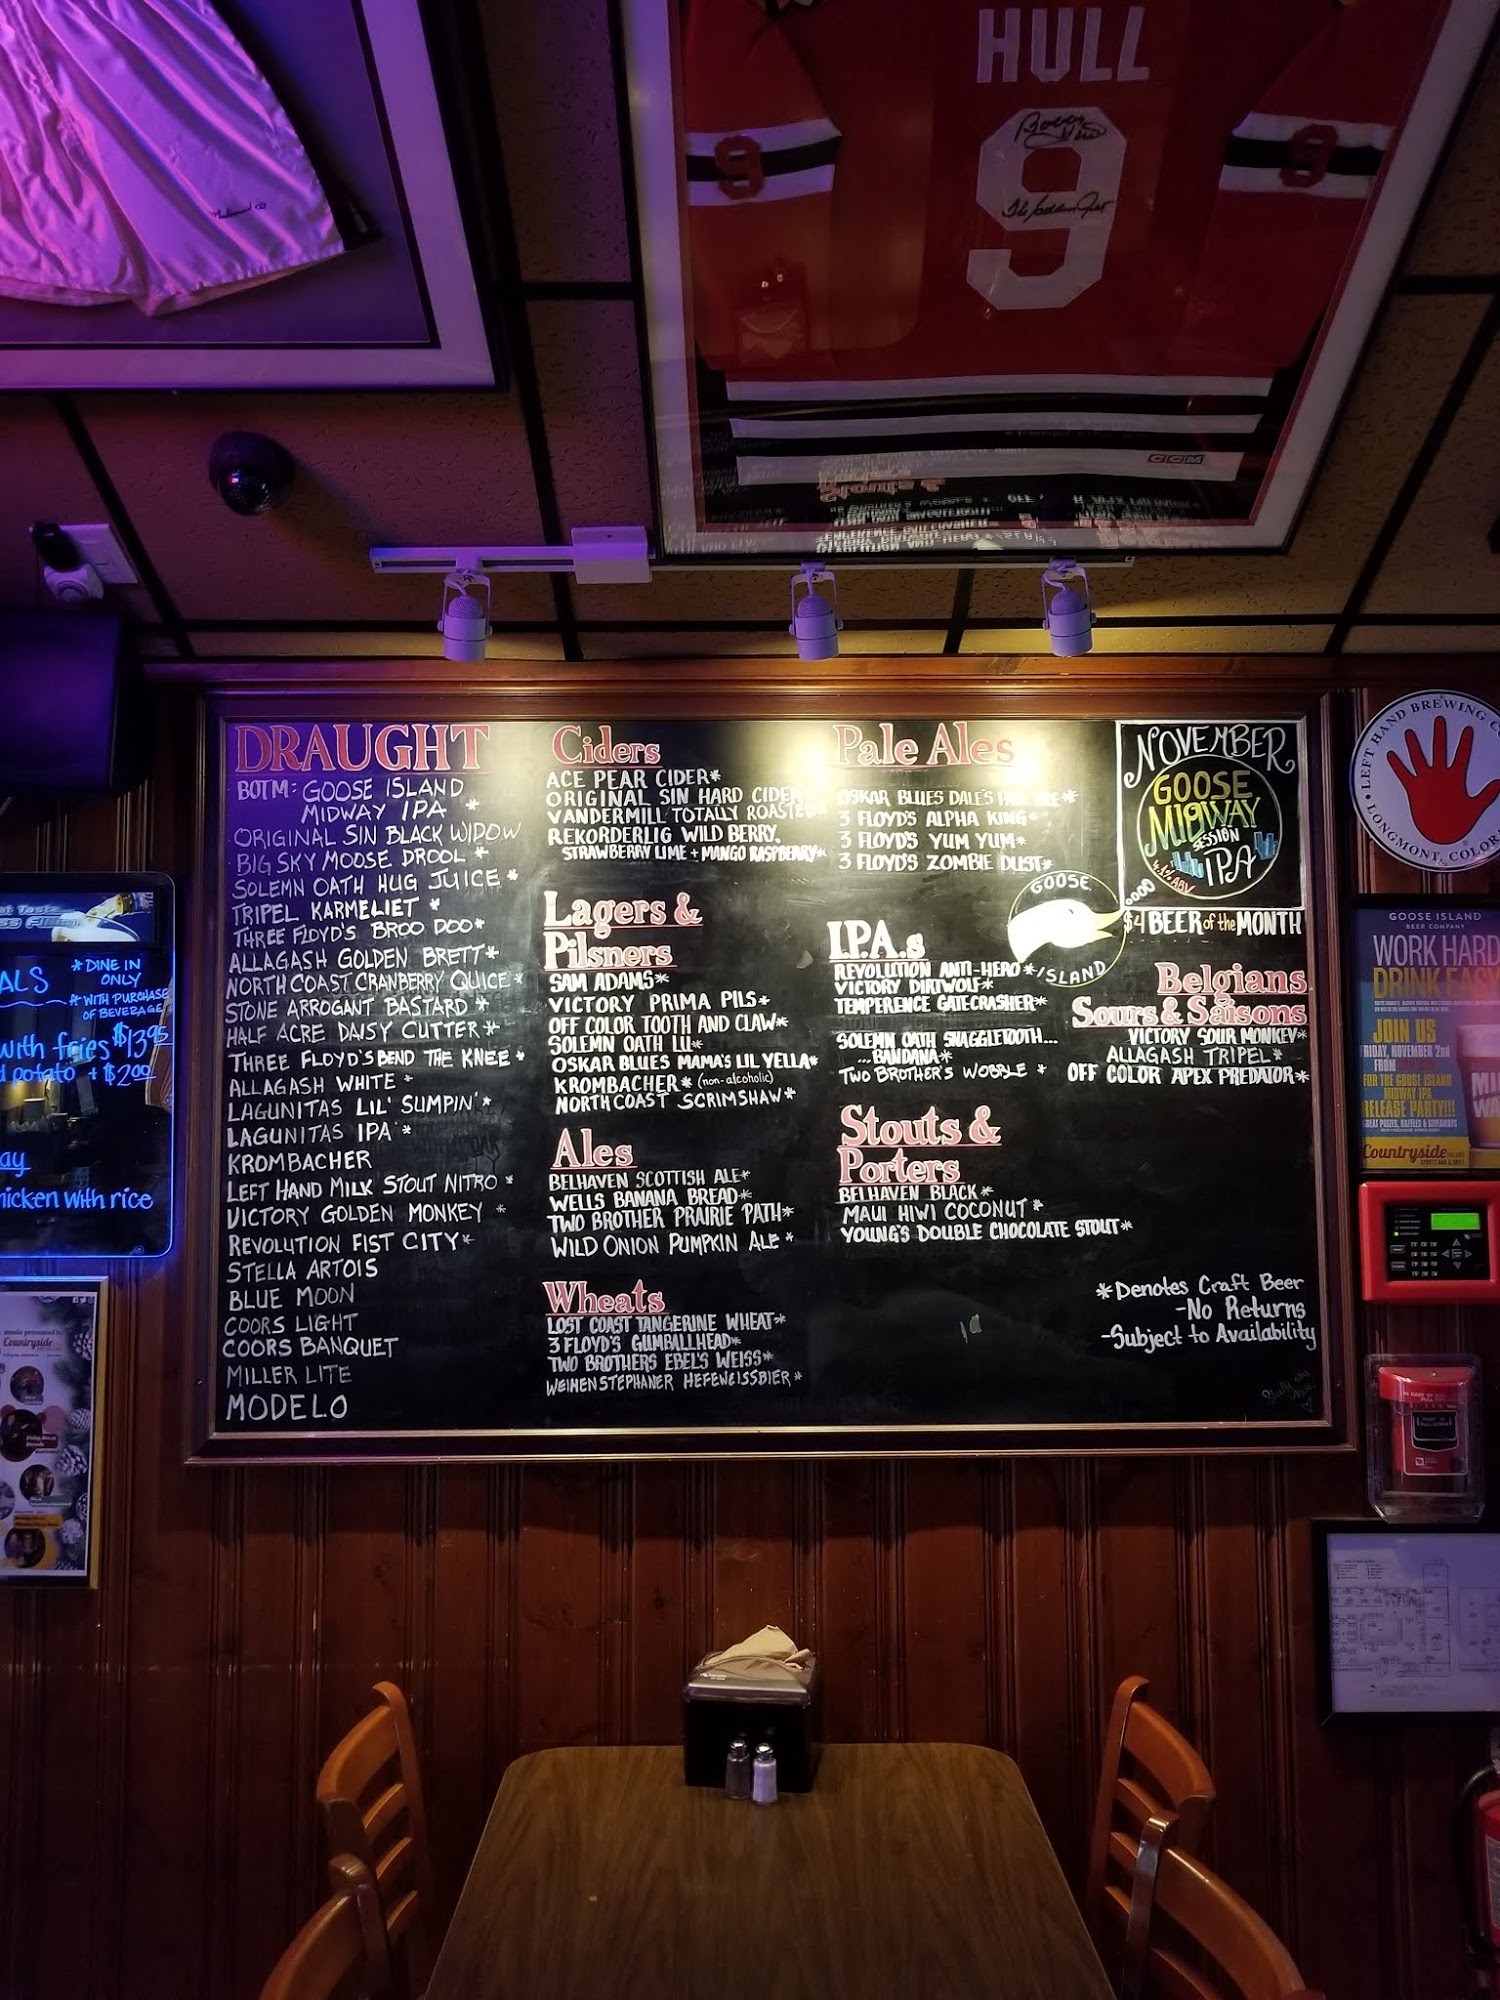 HULL
9
9
9
Bobby Hull
The Golden Jet
CCM
DRAUGHT
BOTM: GOOSE ISLAND
MIDWAY IPA *
ORIGINAL SIN BLACK WIDOW
BIG SKY MOOSE DROOL *
SOLEMN OATH HUG JUICE *
TRIPEL KARMELIET *
THREE FLOYD'S BROO DOO*
ALLAGASH GOLDEN BRETT*
NORTH COAST CRANBERRY QUICE *
STONE ARROGANT BASTARD *
HALF ACRE DAISY CUTTER*
THREE FLOYD'S BEND THE KNEE *
ALLAGASH WHITE *
LAGUNITAS LIL' SUMPIN'*
LAGUNITAS IPA *
KROMBACHER
LEFT HAND MILK STOUT NITRO *
VICTORY GOLDEN MONKEY *
REVOLUTION FIST CITY*
STELLA ARTOIS
BLUE MOON
COORS LIGHT
COORS BANQUET
MILLER LITE
MODELO
Ciders
ACE PEAR CIDER*
ORIGINAL SIN HARD CIDER
VANDERMILL TOTALLY ROASTED*
REKORDERLIG WILD BERRY,
STRAWBERRY LIME + MANGO RASPBERRY*
Lagers &
Pilsners
SAM ADAMS*
VICTORY PRIMA PILS*
OFF COLOR TOOTH AND CLAW*
SOLEMN OATH LU*
OSKAR BLUES MAMA'S LIL YELLA*
KROMBACHER* (non-alcoholic)
NORTH COAST SCRIMSHAW*
Ales
BELHAVEN SCOTTISH ALE*
WELLS BANANA BREAD*
TWO BROTHER PRAIRIE PATH*
WILD ONION PUMPKIN ALE *
Wheats
LOST COAST TANGERINE WHEAT*
3 FLOYD'S GUMBALLHEAD*
TWO BROTHERS EBEL'S WEISS*
WEIHENSTEPHANER HEFEWEISSBIER *
Pale Ales
OSKAR BLUES DALE'S PALE ALE*
3 FLOYD'S ALPHA KING*
3 FLOYD'S YUM YUM*
3 FLOYD'S ZOMBIE DUST*
I.P.A.s
REVOLUTION ANTI-HERO*
VICTORY DIRTWOLF*
TEMPERENCE GATECRASHER*
SOLEMN OATH SNAGGLETOOTH...
...BANDANA*
TWO BROTHER'S WOBBLE *
Stouts &
Porters
BELHAVEN BLACK*
MAUI HIWI COCONUT *
YOUNG'S DOUBLE CHOCOLATE STOUT*
GOOSE
ISLAND
NOVEMBER
GOOSE
MIDWAY
SESSION
IPA
4.1% ABV
$4 BEER of the MONTH
Belgians
Sours & Saisons
VICTORY SOUR MONKEY*
ALLAGASH TRIPEL*
OFF COLOR APEX PREDATOR*
*Denotes Craft Beer
-No Returns
-Subject to Availability
ALS
*DINE IN
ONLY
*WITH PURCHASE
OF BEVERAGE
with fries $13.95
potato + $2.00
ay
hicken with rice
Countryside
LEFT HAND BREWING CO
LONGMONT, COLOR
GOOSE ISLAND
BEER COMPANY
WORK HARD
DRINK EASY
JOIN US
FRIDAY, NOVEMBER 2nd
FROM
FOR THE GOOSE ISLAND
MIDWAY IPA
RELEASE PARTY!!!
GREAT PRIZES, RAFFLES & GIVEAWAYS
Countryside